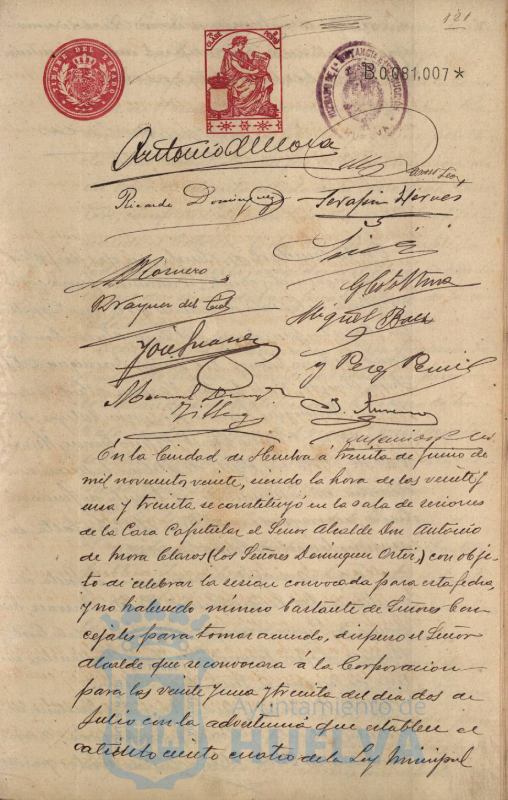 121
TIMBRE DEL ESTADO
B.0.081.007*
Antonio de Mora
Ricardo Dominguez
Serafin
M Romero
Braquer del
Miguel Baez
José Suarez
y Perez
Manuel
J.
En la Ciudad de Huelva á treinta de Junio de
mil novecientos veinte, siendo la hora de las veinte y
una y treinta se constituyó en la sala de sesiones
de la Casa Capitular el Señor Alcalde Don Antonio
de Mora Claros (los Señores Dominguez Ortiz,) con obje-
to de celebrar la sesion convocada para esta fecha,
y no habiendo número bastante de Señores Con-
cejales para tomar acuerdo, dispuso el Señor
Alcalde que se convocara á la Corporacion
para las veinte y una y treinta del dia dos de
Julio con la advertencia que establece el
articulo ciento cuatro de la Ley Municipal
Ayuntamiento de
HUELVA